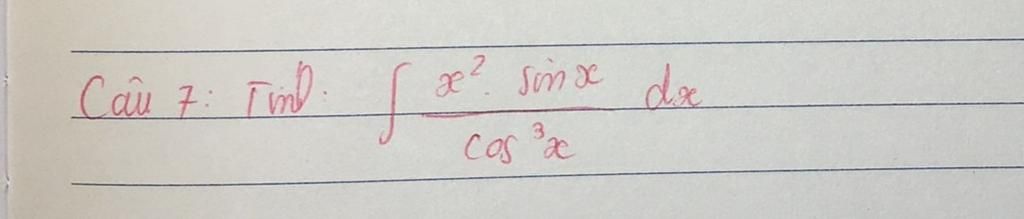 Câu 7: Tính. ∫ (x² . sinx)/(cos³x) dx